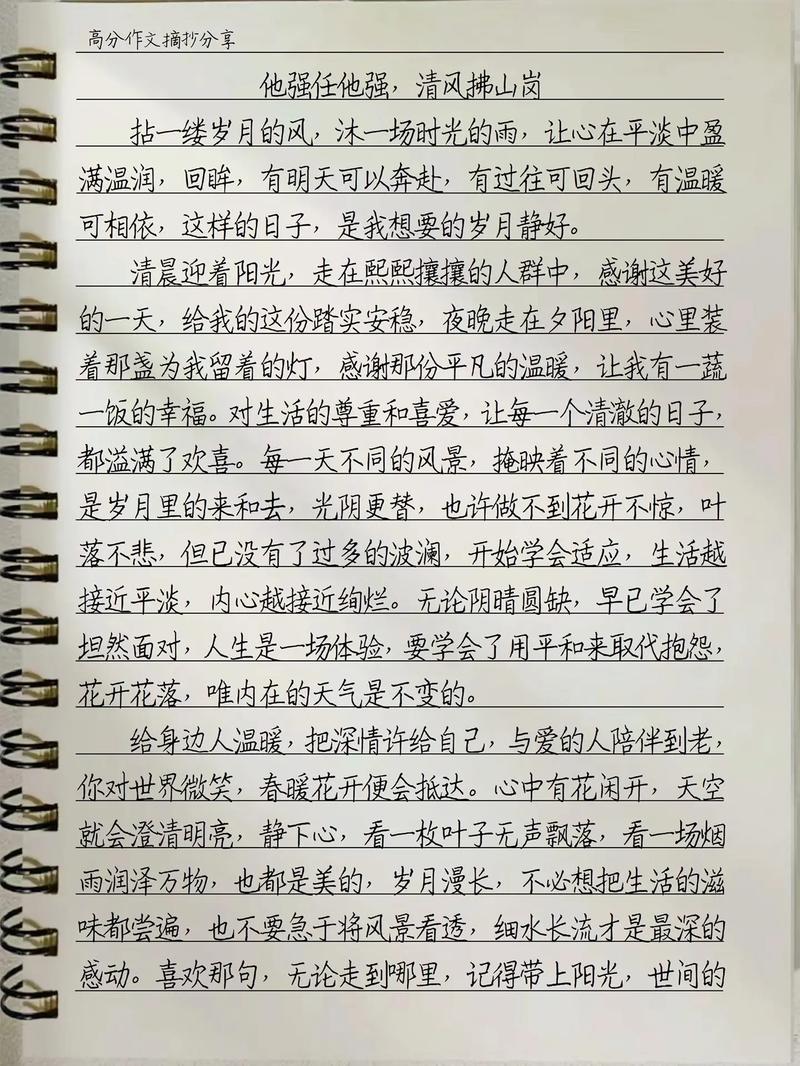 高分作文摘抄分享
他强任他强，清风拂山岗
拈一缕岁月的风，沐一场时光的雨，让心在平淡中盈
满温润，回眸，有明天可以奔赴，有过往可回头，有温暖
可相依，这样的日子，是我想要的岁月静好。
清晨迎着阳光，走在熙熙攘攘的人群中，感谢这美好
的一天，给我的这份踏实安稳，夜晚走在夕阳里，心里装
着那盏为我留着的灯，感谢那份平凡的温暖，让我有一蔬
一饭的幸福。对生活的尊重和喜爱，让每一个清澈的日子，
都溢满了欢喜。每一天不同的风景，掩映着不同的心情，
是岁月里的来和去，光阴更替，也许做不到花开不惊，叶
落不悲，但已没有了过多的波澜，开始学会适应，生活越
接近平淡，内心越接近绚烂。无论阴晴圆缺，早已学会了
坦然面对，人生是一场体验，要学会了用平和来取代抱怨，
花开花落，唯内在的天气是不变的。
给身边人温暖，把深情许给自己，与爱的人陪伴到老，
你对世界微笑，春暖花开便会抵达。心中有花闲开，天空
就会澄清明亮，静下心，看一枚叶子无声飘落，看一场烟
雨润泽万物，也都是美的，岁月漫长，不必想把生活的滋
味都尝遍，也不要急于将风景看透，细水长流才是最深的
感动。喜欢那句，无论走到哪里，记得带上阳光，世间的